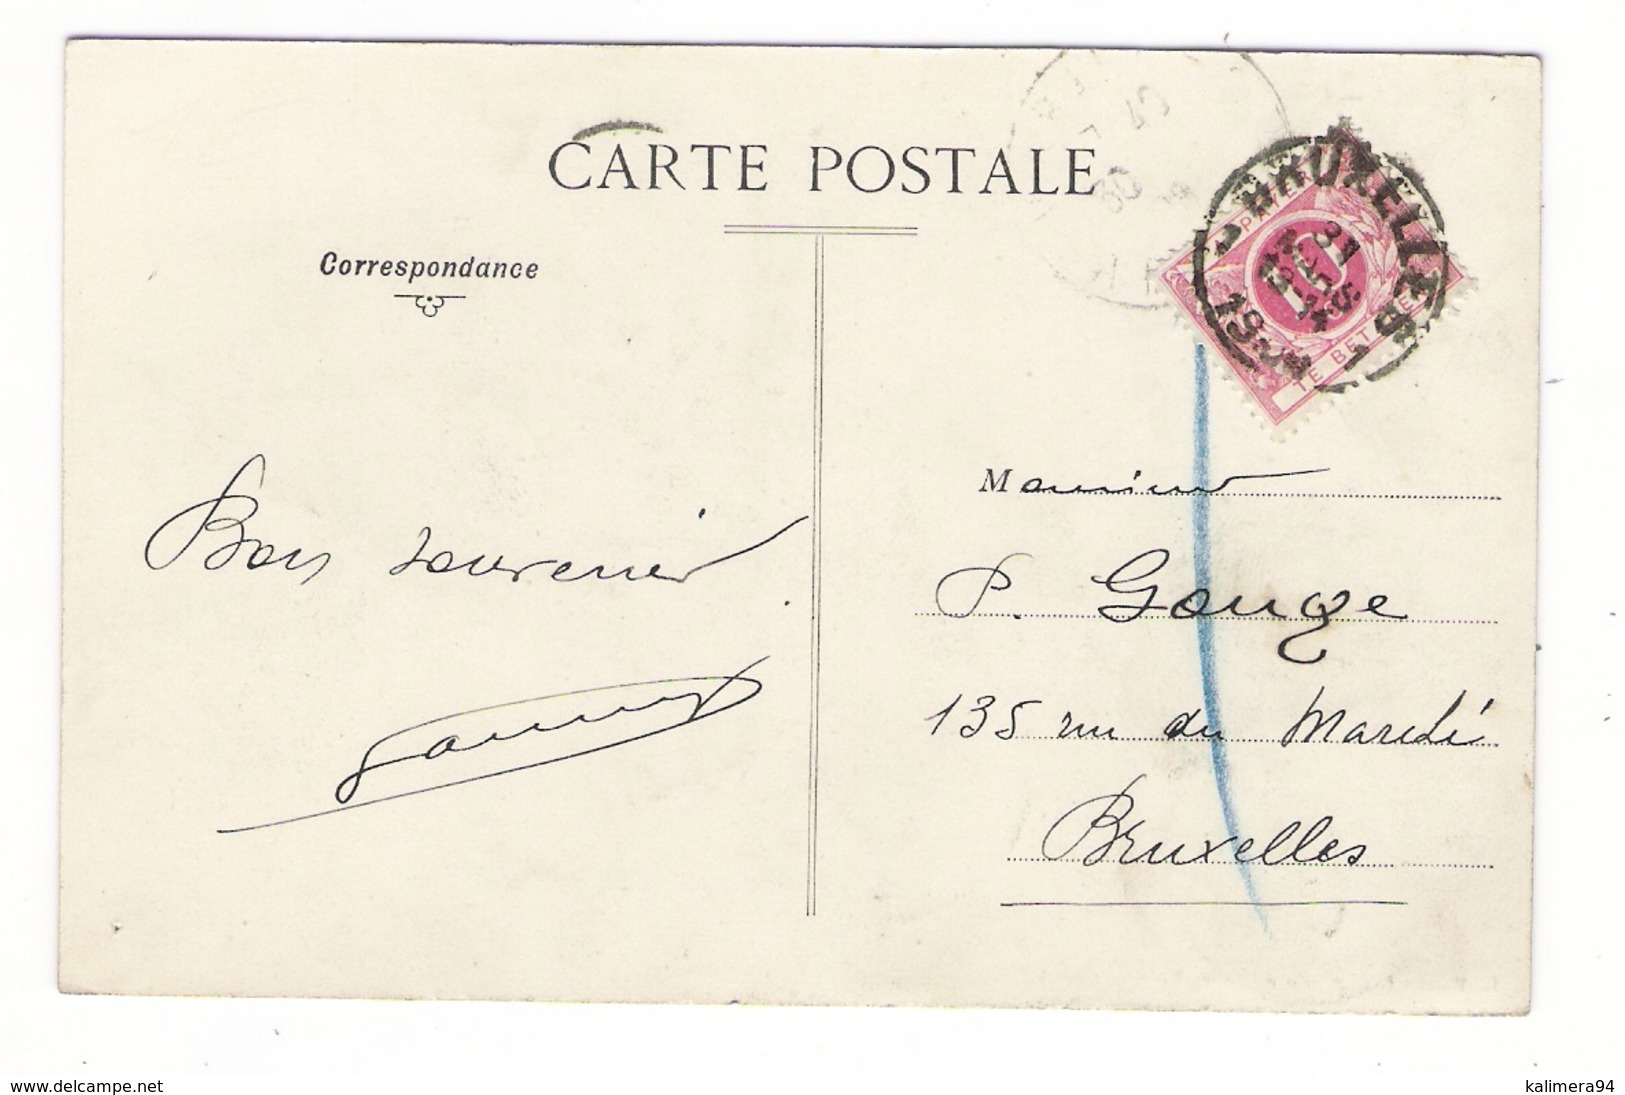 CARTE POSTALE
Correspondance
A PAYER
10
TE BETALEN
BRUXELLES
Bon souvenir
Monsieur
P. Gouge
135 rue du Marché
Bruxelles
www.delcampe.net
kalimera94